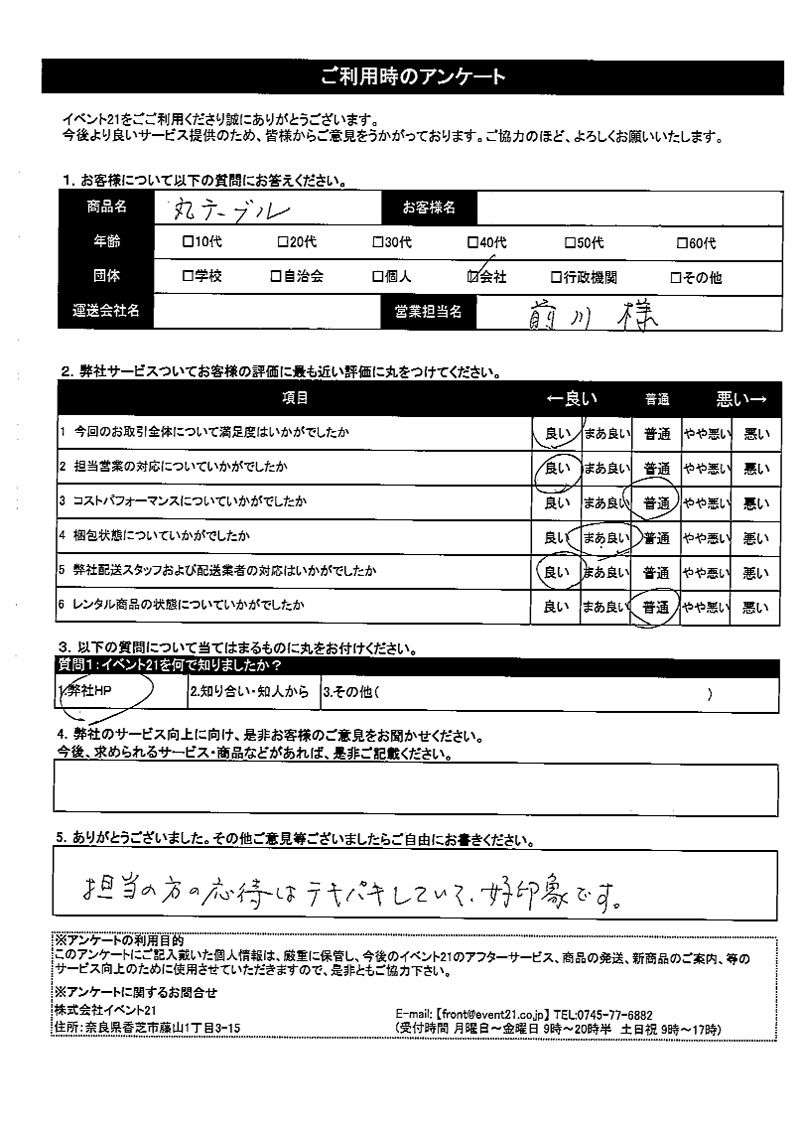 ご利用時のアンケート
イベント21をごご利用くださり誠にありがとうございます。
今後より良いサービス提供のため、皆様からご意見をうかがっております。ご協力のほど、よろしくお願いいたします。
1. お客様について以下の質問にお答えください。
商品名 丸テーブル お客様名
年齢 □10代 □20代 □30代 □40代 □50代 □60代
団体 □学校 □自治会 □個人 ☑会社 □行政機関 □その他
運送会社名 営業担当名 前川 様
2. 弊社サービスついてお客様の評価に最も近い評価に丸をつけてください。
項目 ←良い 普通 悪い→
1 今回のお取引全体について満足度はいかがでしたか 良い まあ良い 普通 やや悪い 悪い
2 担当営業の対応についていかがでしたか 良い まあ良い 普通 やや悪い 悪い
3 コストパフォーマンスについていかがでしたか 良い まあ良い 普通 やや悪い 悪い
4 梱包状態についていかがでしたか 良い まあ良い 普通 やや悪い 悪い
5 弊社配送スタッフおよび配送業者の対応はいかがでしたか 良い まあ良い 普通 やや悪い 悪い
6 レンタル商品の状態についていかがでしたか 良い まあ良い 普通 やや悪い 悪い
3. 以下の質問について当てはまるものに丸をお付けください。
質問1:イベント21を何で知りましたか?
1.弊社HP 2.知り合い・知人から 3.その他( )
4. 弊社のサービス向上に向け、是非お客様のご意見をお聞かせください。
今後、求められるサービス・商品などがあれば、是非ご記載ください。
5. ありがとうございました。その他ご意見等ございましたらご自由にお書きください。
担当の方の応待はテキパキしていて、好印象です。
※アンケートの利用目的
このアンケートにご記入戴いた個人情報は、厳重に保管し、今後のイベント21のアフターサービス、商品の発送、新商品のご案内、等の
サービス向上のために使用させていただきますので、是非ともご協力下さい。
※アンケートに関するお問合せ
株式会社イベント21 E-mail:【front@event21.co.jp】 TEL:0745-77-6882
住所:奈良県香芝市藤山1丁目3-15 (受付時間 月曜日～金曜日 9時～20時半 土日祝 9時～17時)